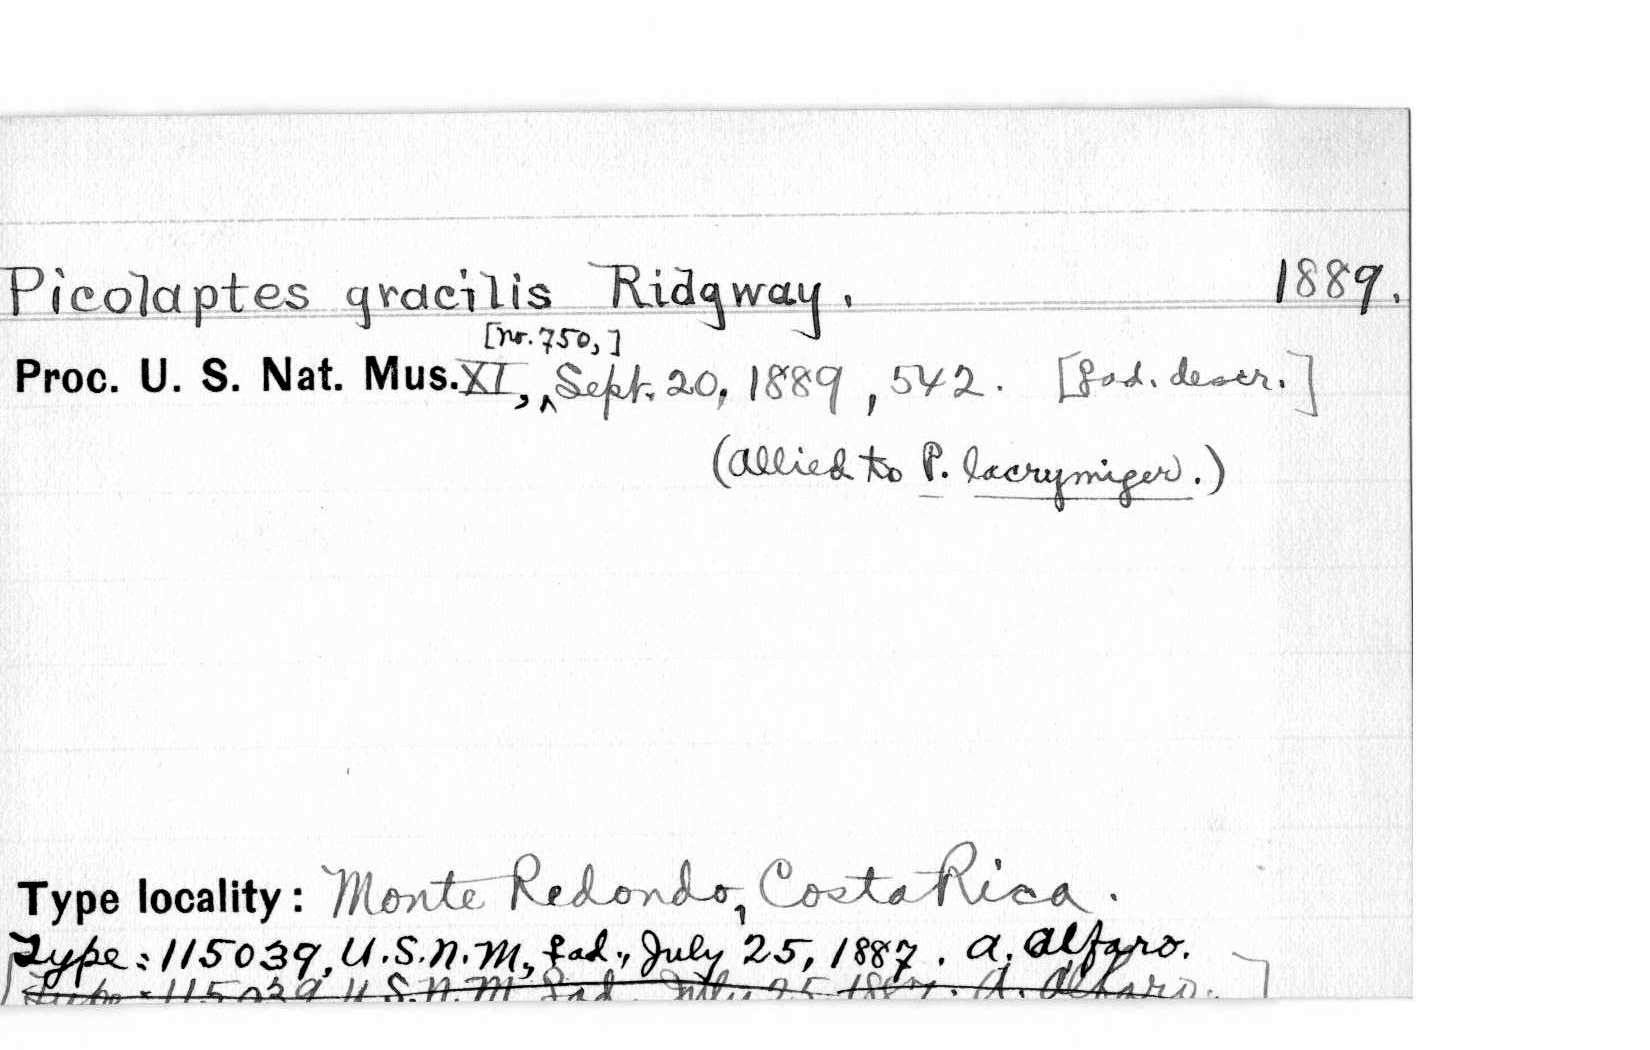 Picolaptes gracilis Ridgway. 1889.
[no. 750,]
Proc. U. S. Nat. Mus. XI, ^ Sept. 20, 1889, 542. [♀ad. descr.]
(allied to P. lacrymiger.)
Type locality: Monte Redondo, Costa Rica.
Type: 115039, U.S.N.M., ♀ad., July 25, 1887. A. Alfaro.
Type: 115039 U.S.N.M. ♀ad. July 25 1887. A. Alfaro.]